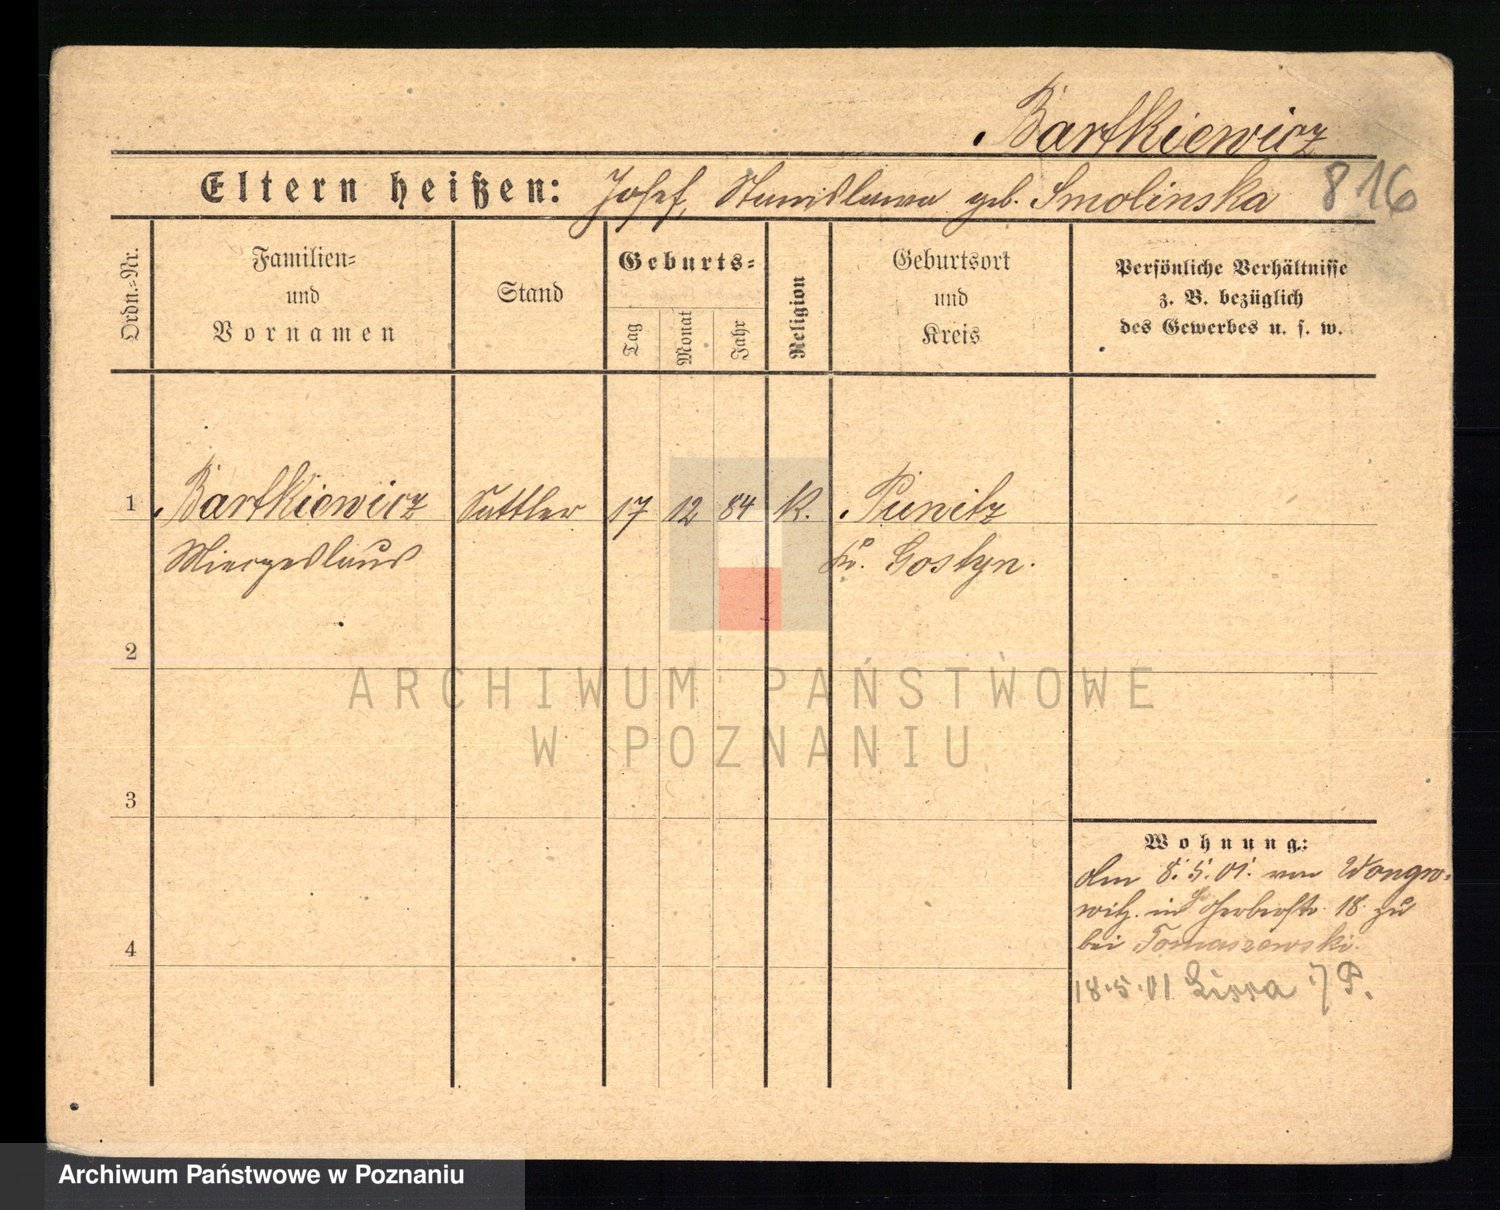 Bartkiewicz
Eltern heißen: Josef, Stanislawa geb. Smolinska 816
Ordn.-Nr.
Familien-
und
Vornamen
Stand
Geburts-
Tag
Monat
Jahr
Religion
Geburtsort
und
Kreis
Persönliche Verhältnisse
z. B. bezüglich
des Gewerbes u. s. w.
1 Bartkiewicz Sattler 17 12 84 K. Punitz
Mieczeslaus Kr. Gostyn.
2
ARCHIWUM PAŃSTWOWE
W POZNANIU
3
Wohnung:
Am 8.5.01. von Wongro-
witz. in Gerberstr. 18 zu
bei Tomaszewski.
4
18.5.01 Lissa i/P.
Archiwum Państwowe w Poznaniu